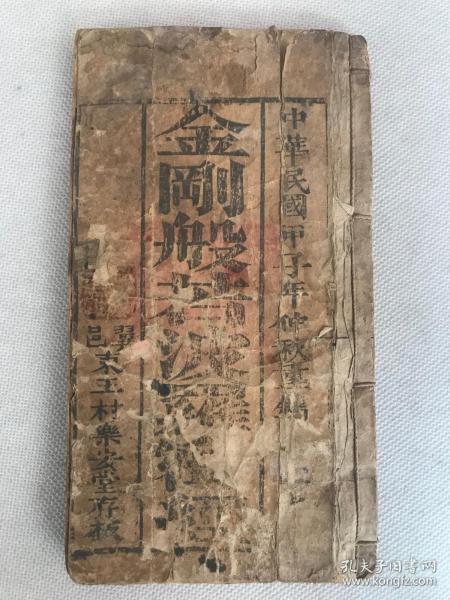 中華民國甲子年仲秋重鐫
金剛般若波羅蜜經
翼邑東王村樂安堂存板
孔夫子旧书网
www.kongfz.com